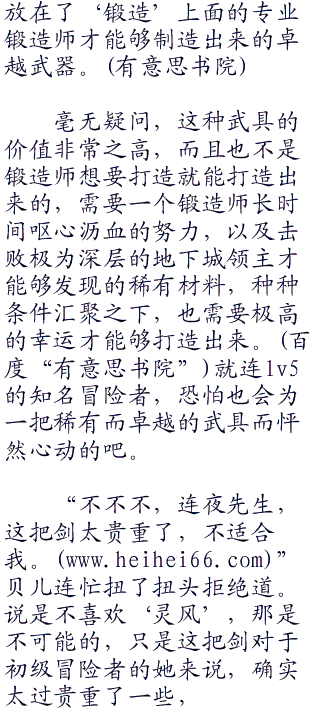 放在了‘锻造’上面的专业
锻造师才能够制造出来的卓
越武器。(有意思书院)
毫无疑问，这种武具的
价值非常之高，而且也不是
锻造师想要打造就能打造出
来的，需要一个锻造师长时
间呕心沥血的努力，以及击
败极为深层的地下城领主才
能够发现的稀有材料，种种
条件汇聚之下，也需要极高
的幸运才能够打造出来。(百
度“有意思书院”)就连lv5
的知名冒险者，恐怕也会为
一把稀有而卓越的武具而怦
然心动的吧。
“不不不，连夜先生，
这把剑太贵重了，不适合
我。(www.heihei66.com)”
贝儿连忙扭了扭头拒绝道。
说是不喜欢‘灵风’，那是
不可能的，只是这把剑对于
初级冒险者的她来说，确实
太过贵重了一些，